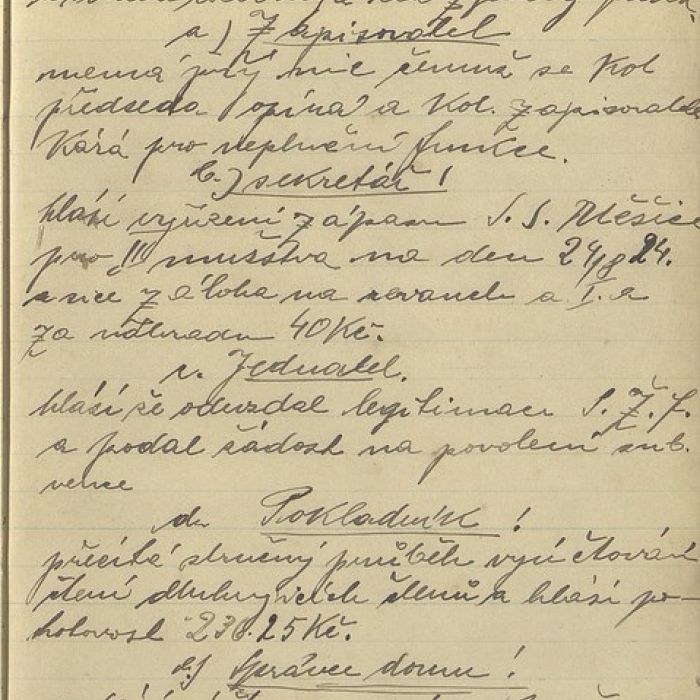 a) Zapisovatel
nemá prý nic čemuž se Kol
předseda opírá a Kol. zapisovatele
Kárá pro neplnění funkce.
b.) sekretář!
hlásí vyřízení zápasu S. S. Měšice
pro II mužstva na den 24/8 24.
a sice záloha na revanch a I. a
za náhradu 40 Kč.
c. Jednatel.
hlásí že odevzdal legitimaci S. Ž. F.
a podal žádost na povolení sub.
vence
d. Pokladník!
přečítá stručný průběh vyúčtování
čtení dluhujících členů a hlásí po-
hotovost 236.25 Kč.
e.) Správce domu!